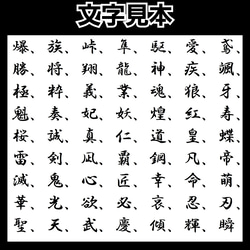 文字見本
爆、族、峠、隼、駆、愛、鳶、
勝、将、翔、龍、神、疾、颯、
極、粋、義、業、魂、狼、牙、
魁、奏、妃、妖、煌、紅、寿、
桜、誠、真、仁、道、皇、蝶、
雷、剣、凪、覇、鋼、凡、帝、
滅、鬼、心、匠、幸、命、萌、
華、光、欲、必、哀、忍、刃、
聖、天、武、慶、傾、輝、瞬、